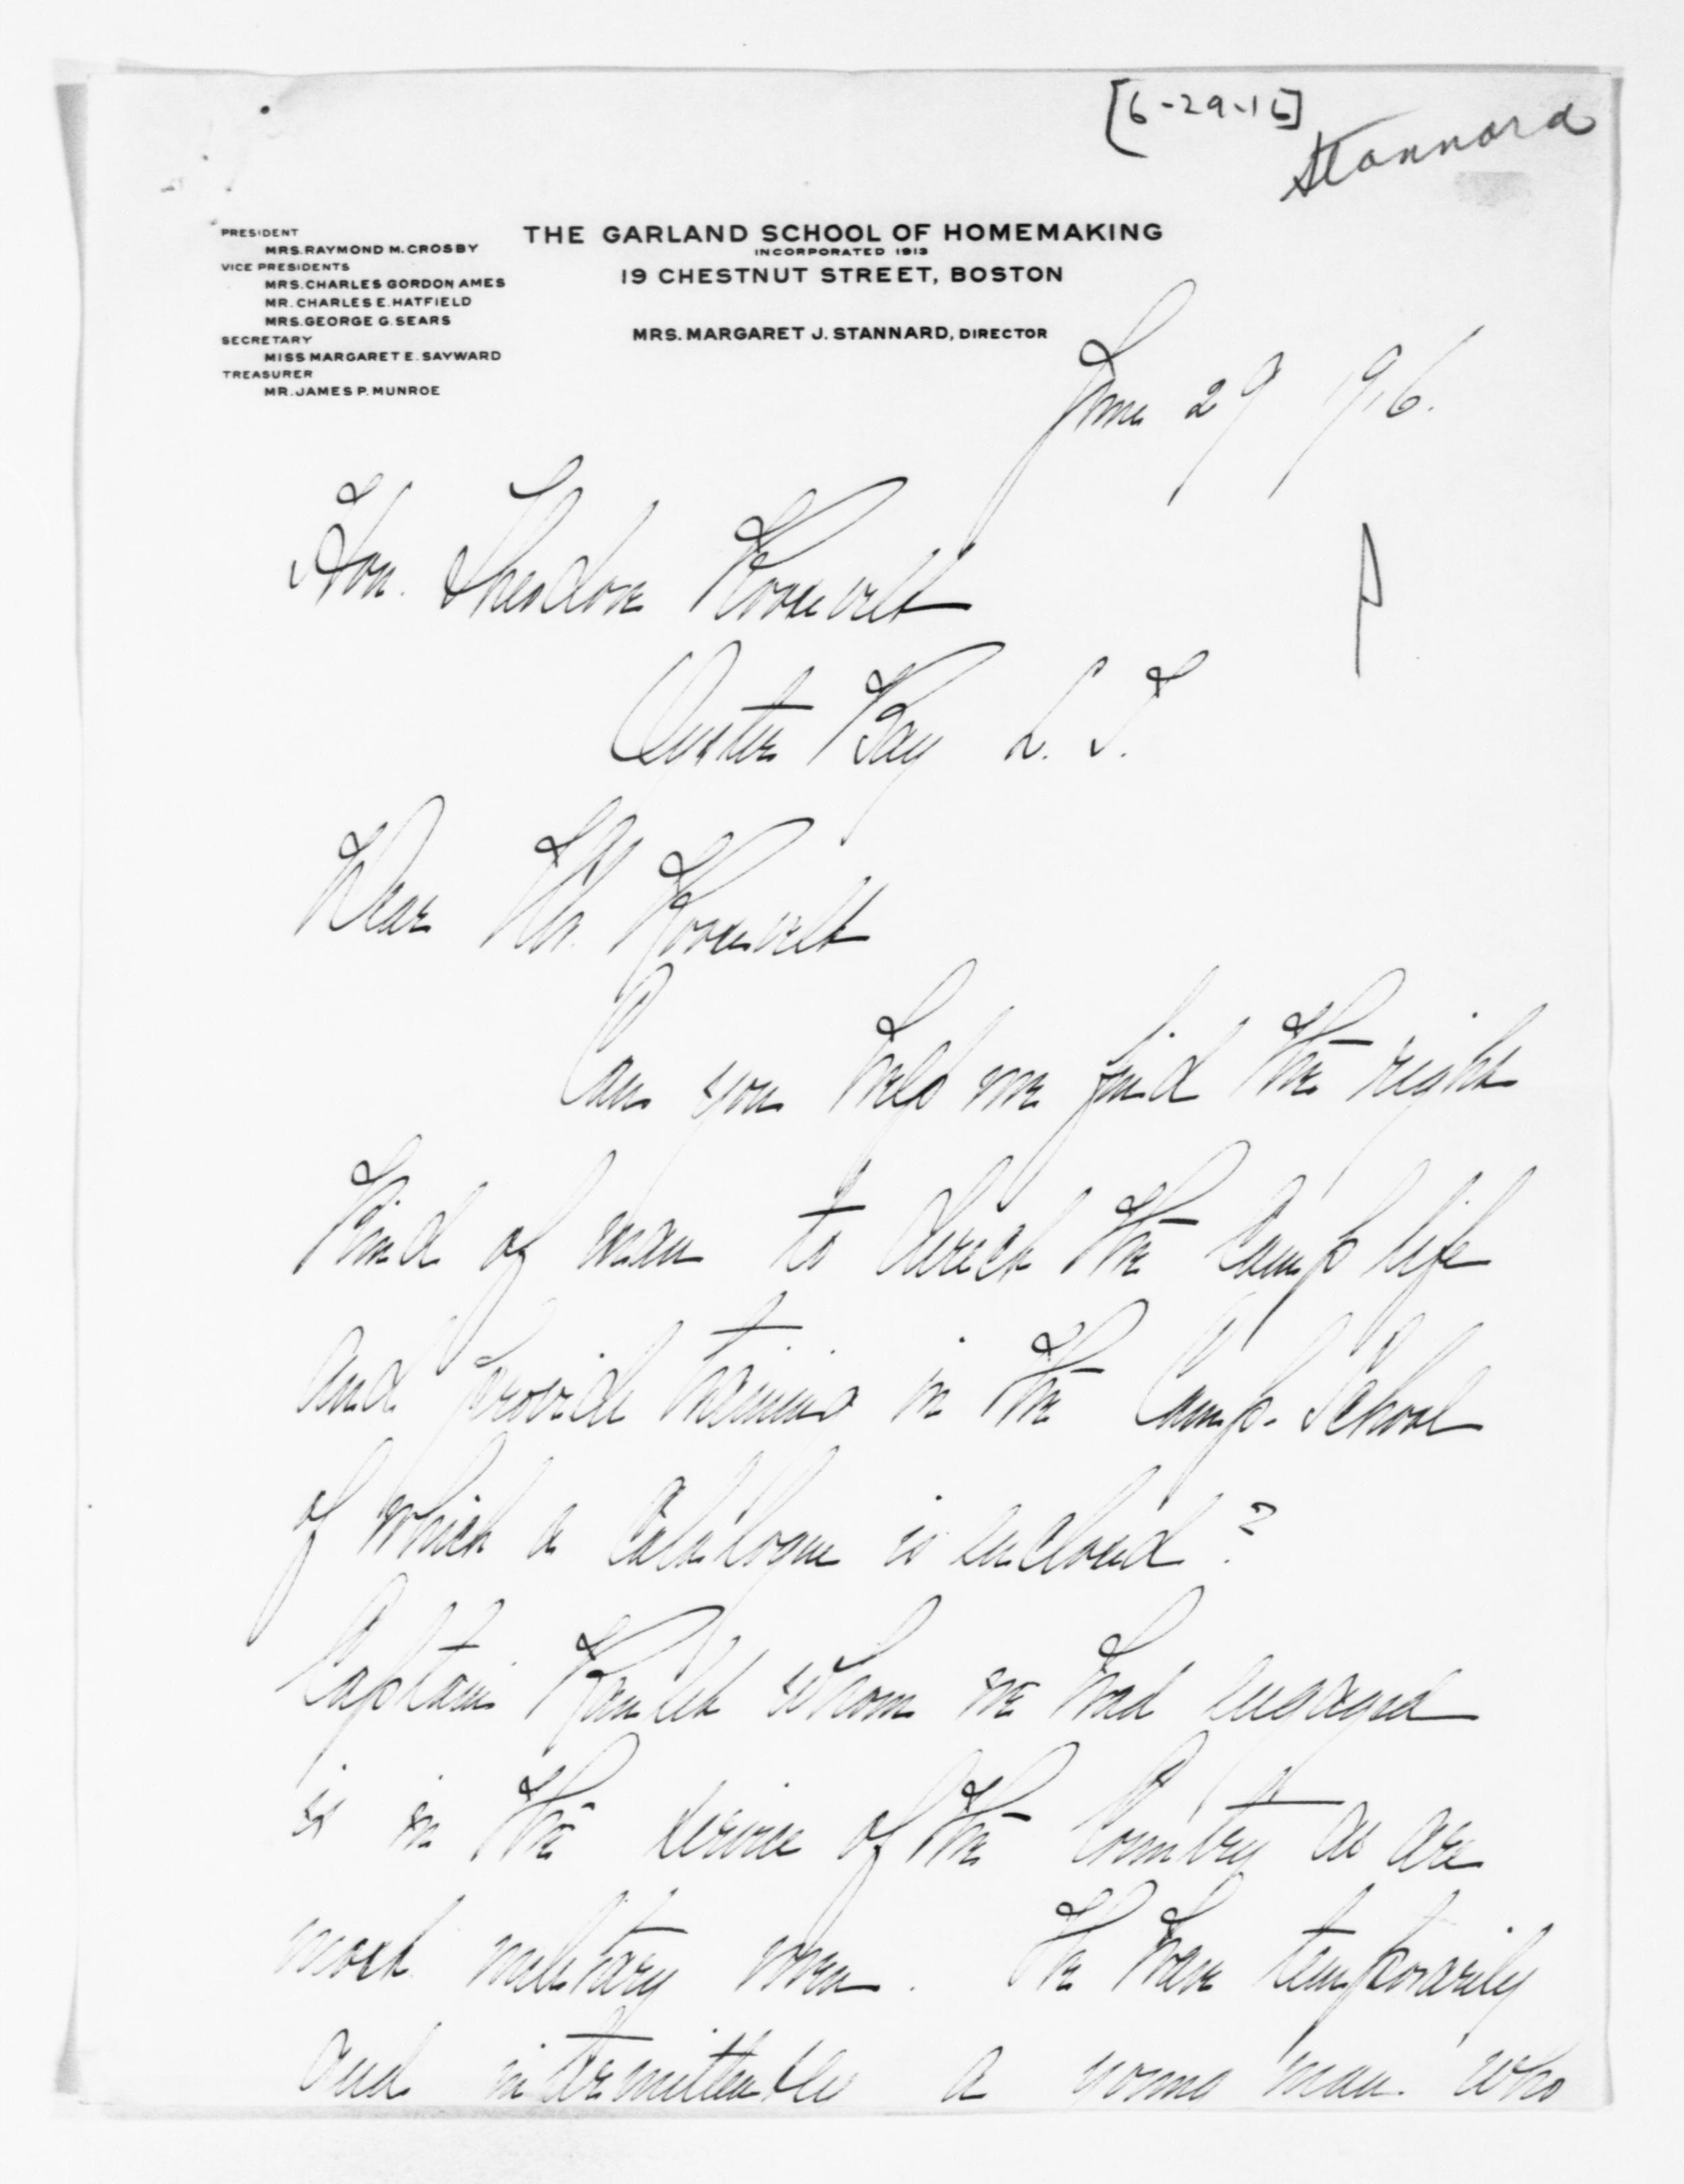 [6-29-16]
Stannard
PRESIDENT
MRS. RAYMOND M. CROSBY
VICE PRESIDENTS
MRS. CHARLES GORDON AMES
MR. CHARLES E. HATFIELD
MRS. GEORGE G. SEARS
SECRETARY
MISS MARGARET E. SAYWARD
TREASURER
MR. JAMES P. MUNROE
THE GARLAND SCHOOL OF HOMEMAKING
INCORPORATED 1913
19 CHESTNUT STREET, BOSTON
MRS. MARGARET J. STANNARD, DIRECTOR
June 29 1916.
Hon. Theodore Roosevelt
Oyster Bay L. I.
Dear Mr. Roosevelt
Can you help me find the right
kind of man to direct the Camp life
and provide training in the Camp-School
of which a Catalogue is enclosed?
Captain whom we had engaged
is in the service of the Country as are
most military men. We have temporarily
and intermittently a young man who